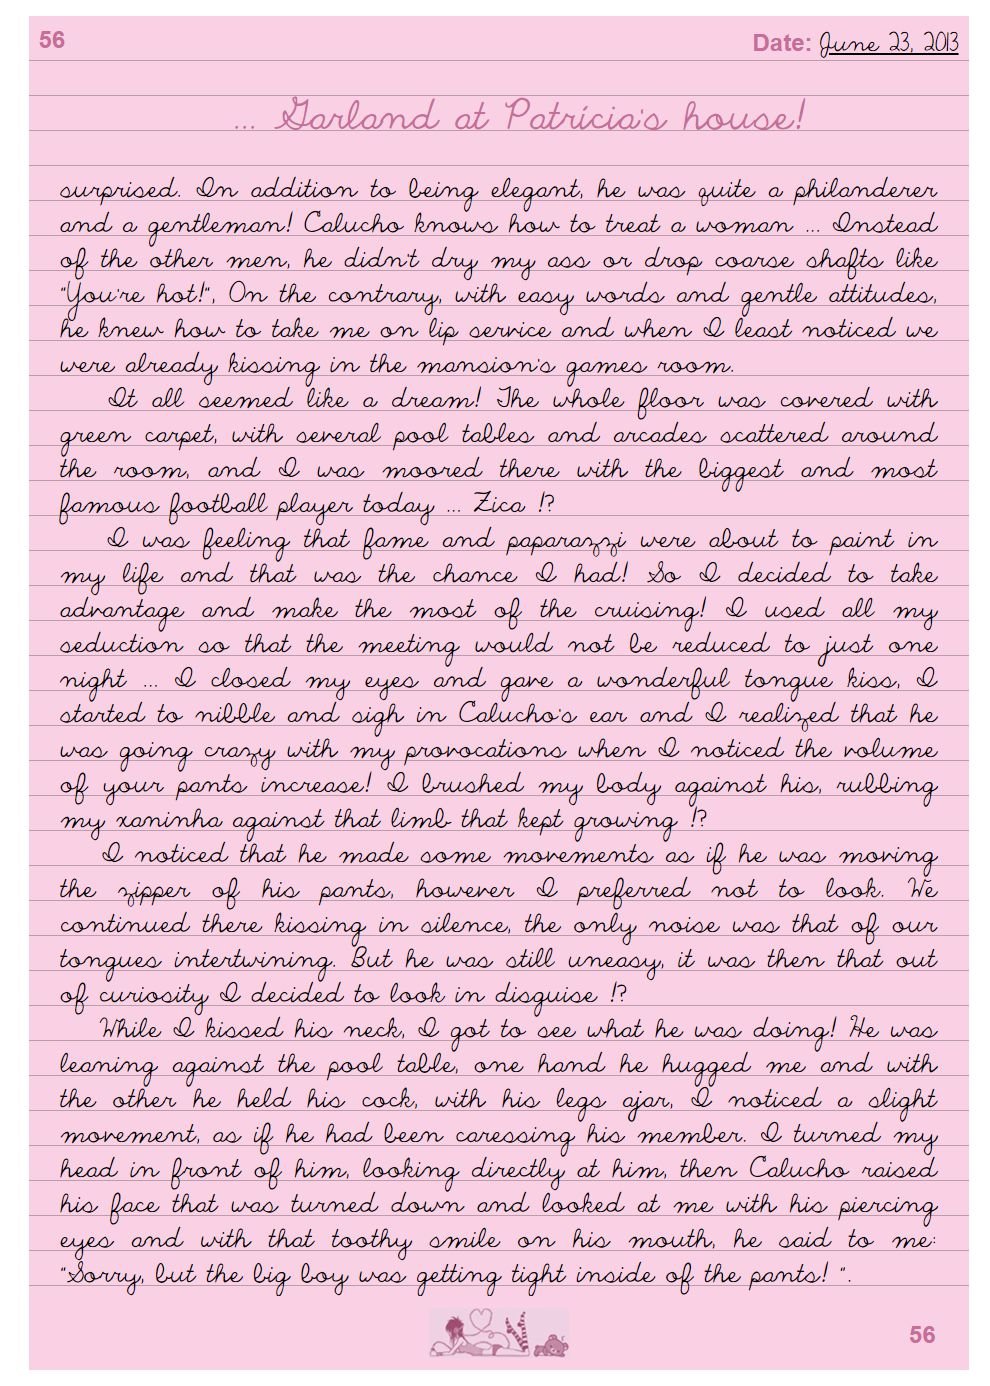 56
Date: June 23, 2013
... Garland at Patrícia's house!
surprised. In addition to being elegant, he was quite a philanderer
and a gentleman! Calucho knows how to treat a woman ... Instead
of the other men, he didn't dry my ass or drop coarse shafts like
"You're hot!", On the contrary, with easy words and gentle attitudes,
he knew how to take me on lip service and when I least noticed we
were already kissing in the mansion's games room.
It all seemed like a dream! The whole floor was covered with
green carpet, with several pool tables and arcades scattered around
the room, and I was moored there with the biggest and most
famous football player today ... Zica !?
I was feeling that fame and paparazzi were about to paint in
my life and that was the chance I had! So I decided to take
advantage and make the most of the cruising! I used all my
seduction so that the meeting would not be reduced to just one
night ... I closed my eyes and gave a wonderful tongue kiss, I
started to nibble and sigh in Calucho's ear and I realized that he
was going crazy with my provocations when I noticed the volume
of your pants increase! I brushed my body against his, rubbing
my xaninha against that limb that kept growing !?
I noticed that he made some movements as if he was moving
the zipper of his pants, however I preferred not to look. We
continued there kissing in silence, the only noise was that of our
tongues intertwining. But he was still uneasy, it was then that out
of curiosity I decided to look in disguise !?
While I kissed his neck, I got to see what he was doing! He was
leaning against the pool table, one hand he hugged me and with
the other he held his cock, with his legs ajar, I noticed a slight
movement, as if he had been caressing his member. I turned my
head in front of him, looking directly at him, then Calucho raised
his face that was turned down and looked at me with his piercing
eyes and with that toothy smile on his mouth, he said to me:
"Sorry, but the big boy was getting tight inside of the pants! ".
56